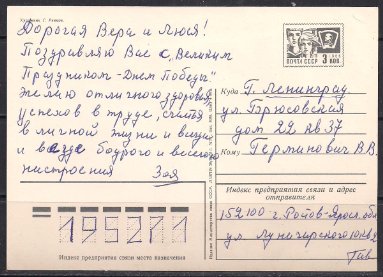 Художник Г. Ренков
Дорогая Вера и Люся!
Поздравляю Вас с "Великим
Праздником - Днем Победы"
желаю отличного здоровья,
успехов в труде, счастья
в личной жизни и всегда
и везде бодрого и веселого
настроения Зоя
ПОЧТА СССР 3 КОП
Куда г. Ленинград
ул. Брюсовская
дом 22 кв 37
Кому Герминович В.В.
Индекс предприятия связи и адрес
отправителя
152100 г. Ростов-Яросл. обл
ул. Луначарского
195271
Индекс предприятия связи места назначения